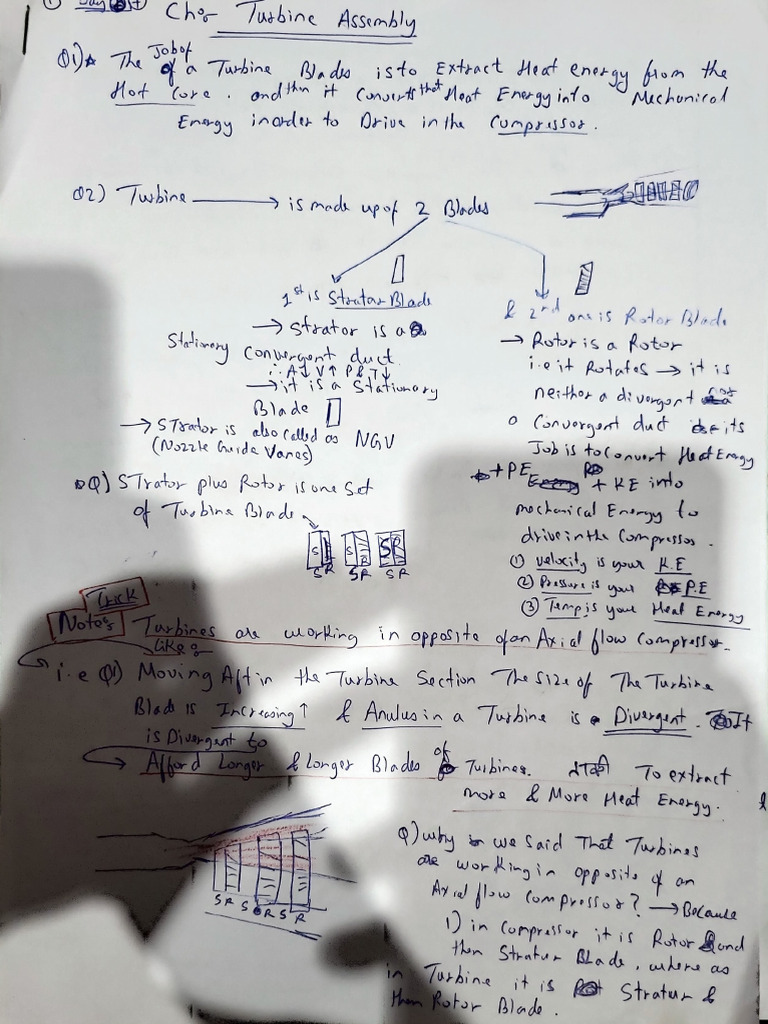 Ch: Turbine Assembly
Q1)* The Job of of a Turbine Blades is to Extract Heat energy from the
Hot Core. and then it Converts that Heat Energy into Mechanical
Energy inorder to Drive in the Compressor.
Q2) Turbine → is made up of 2 Blades
1st is Strator Blade
→ Strator is a
Stationary Convergent duct
∴ A↓ V↑ P&T↓
→ it is a Stationary
Blade
→ STrator is also called as NGV
(Nozzle Guide Vanes)
& 2nd one is Rotor Blade
→ Rotor is a Rotor
i.e it Rotates → it is
neither a divergent nor
a Convergent duct its
Job is to Convert Heat Energy
+ PE + KE into
mechanical Energy to
drive in the Compressor.
① velocity is your K.E
② Pressure is your P.E
③ Temp is your Heat Energy
Q) STrator plus Rotor is one Set
of Turbine Blade
S R S R S R
S R S R S R
Trick
Notes Turbines are working in opposite of an Axial flow Compressor.
Like:
i.e Q1) Moving Aft in the Turbine Section The Size of The Turbine
Blade is Increasing↑ & Anulus in a Turbine is Divergent. It
is Divergent to
→ Afford Longer & Longer Blades of Turbines. ताकी To extract
more & More Heat Energy.
S R S R S R
Q) why we Said That Turbines
are working in opposite of an
Axial flow Compressor? → Because
1) in Compressor it is Rotor and
then Strator Blade, where as
in Turbine it is Strator &
then Rotor Blade.